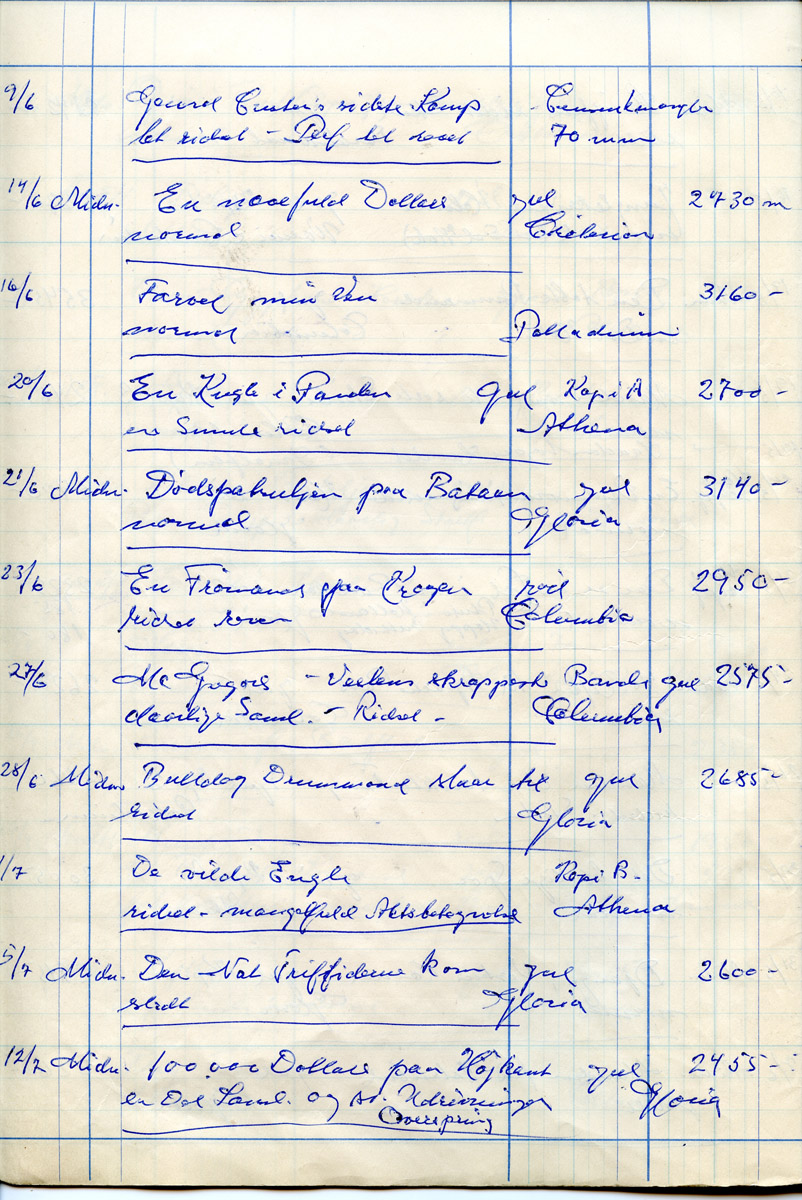 9/6 General Custer's sidste Kamp
let ridset - Perf let
70 mm
14/6 Midn. En naadfuld Dollars gul 2730 m
normal Criterion
16/6 Farvel min Ven 3160 -
normal Palladium
20/6 En Kugle i Panden gul Kopi A 2700 -
en Smule ridset Athena
21/6 Midn. Dödspatruljen paa Bataan gul 3140 -
normal Gloria
23/6 En Fremmed paa Krogen röd 2950 -
ridset Columbia
27/6 Mc Gregors - Vestens skrappeste Bande gul 2575 -
daarlige Saml. - Ridset - Columbia
28/6 Midn. Bulldog Drummond slaar til gul 2685 -
ridset Gloria
1/7 De vilde Engle Kopi B -
ridset - mangelfuld Aktsbetegnelse Athena
5/7 Midn. Den Nat Triffiderne kom gul 2600 -
slidt Gloria
12/7 Midn. 100.000 Dollars paa Höjkant gul 2455 -
en Del Saml. og Udrivninger Gloria
Overspring